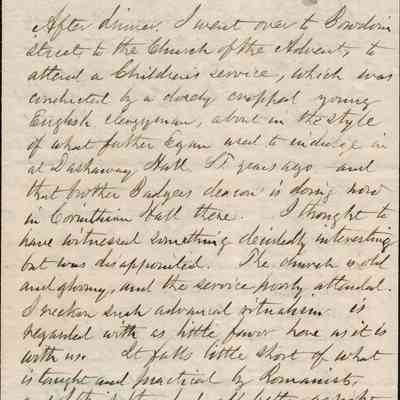 After dinner, I went over to Bowdoin
street, to the Church of the Advent, to
attend a Children's service, which was
conducted by a closely cropped young
English clergyman, about in the style
of what father Egan used to indulge in
at Dashaway Hall years ago and
that brother Badgers deacon is doing now
in Corinthian Hall there. I thought to
have witnessed something decidedly interesting
but was disappointed. The church is old
and gloomy, and the service poorly attended.
I reckon such advanced ritualism is
regarded with as little favor here as it is
with us. It falls little short of what
is taught and practiced by Romanists,